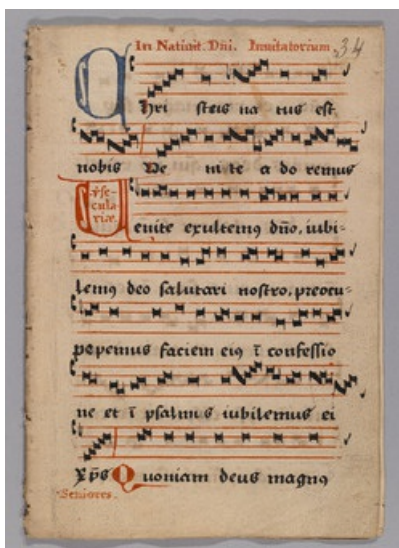 In Nativit. Dñi. Invitatorium. 34
Chri steis na tus est
nobis Ve ni te a do remus
v̄se-
cula-
riæ.
Venite exultemꝯ dño, iubi-
lemꝯ deo salutari nostro, preocu-
pepemus faciem eiꝯ ī confessio
ne et ī psalmis iubilemus ei
Xp̄s Quoniam deus magnꝯ
Seniores.